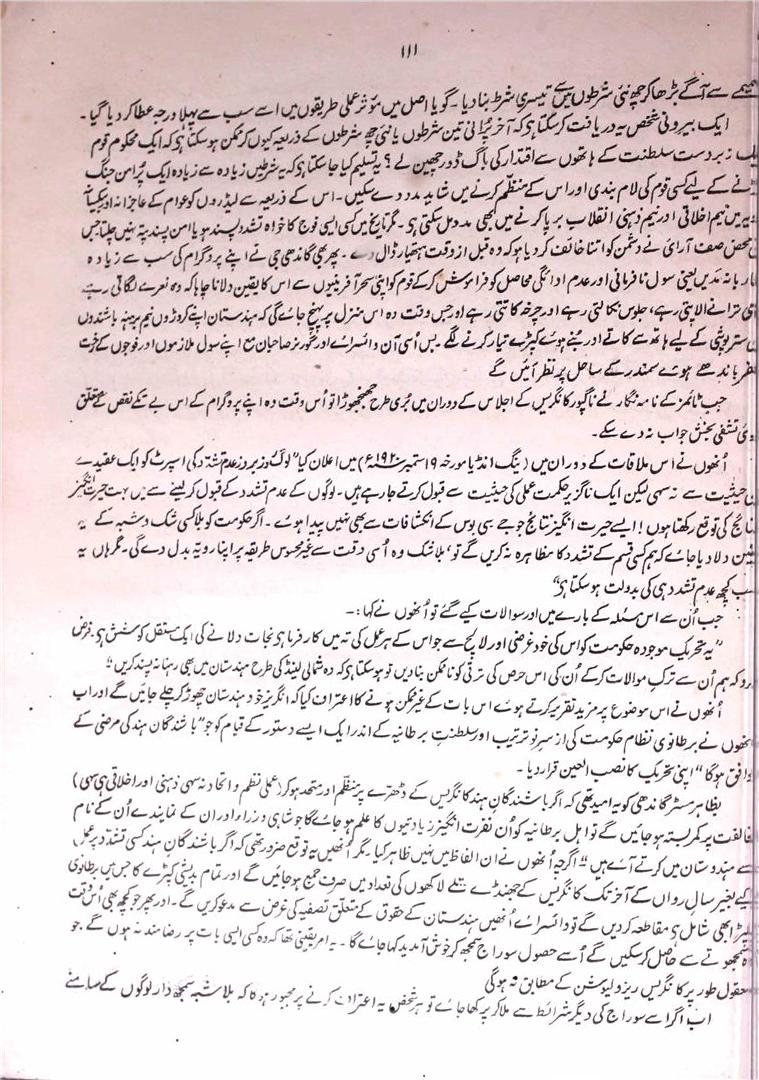 ۱۱۱
سے آگے بڑھا کر چھ نئی شرطوں میں سے تیسری شرط بنا دیا۔ گویا اصل میں مؤثر عملی طریقوں میں اسے سب سے پہلا درجہ عطا کر دیا گیا۔
ایک بیرونی شخص یہ دریافت کر سکتا ہے کہ آخر پُرانی تین شرطوں یا نئی چھ شرطوں کے ذریعہ کیوں کر ممکن ہو سکتا ہے کہ ایک محکوم قوم
زبردست سلطنت کے ہاتھوں سے اقتدار کی باگ ڈور چھین لے؟ یہ تسلیم کیا جا سکتا ہے کہ یہ شرطیں زیادہ سے زیادہ ایک پُر امن جنگ
کے لیے کسی قوم کی لام بندی اور اس کے منظم کرنے میں شاید مدد دے سکیں۔ اس کے ذریعہ سے لیڈروں کو عوام کے عاجزانہ اور
میں نیم اخلاقی اور نیم ذہنی انقلاب برپا کرنے میں بھی مدد مل سکتی ہے۔ مگر تاریخ میں کسی ایسی فوج کا خواہ تشدد پسند ہو یا امن پسند پتہ نہیں چلتا جس
محض صف آرائی نے دشمن کو اتنا خائف کر دیا ہو کہ وہ قبل از وقت ہتھیار ڈال دے۔ پھر بھی گاندھی جی نے اپنے پروگرام کی سب سے زیادہ
مدیں یعنی سول نافرمانی اور عدم ادائگی محاصل کو فراموش کر کے قوم کو اپنی سحر آفرینیوں سے اس کا یقین دلانا چاہا کہ وہ نعرے لگاتی رہے
ترانے الاپتی رہے، جلوس نکالتی رہے اور چرخہ کاتتی رہے اور جس وقت وہ اس منزل پر پہنچ جائے گی کہ ہندستان اپنے کروڑوں نیم برہنہ باشندوں
ستر پوشی کے لیے ہاتھ سے کاتے اور بُنے ہوئے کپڑے تیار کرنے لگے۔ بس اُسی آن وائسرائے اور گورنر صاحبان مع اپنے سول ملازموں اور فوجوں کے رخت
باندھے ہوئے سمندر کے ساحل پر نظر آئیں گے
جب ٹائمز کے نامہ نگار نے ناگپور کانگریس کے اجلاس کے دوران میں بُری طرح جھنجھوڑا تو اُس وقت وہ اپنے پروگرام کے اس بے تکے نقص کے متعلق
تشفی بخش جواب نہ دے سکے۔
اُنھوں نے اس ملاقات کے دوران میں (ینگ انڈیا مورخہ ۱۹ ستمبر ۱۹۲۰ء) میں اعلان کیا "لوگ روز بروز عدم تشدد کی اسپرٹ کو ایک عقیدے
حیثیت سے نہ سہی لیکن ایک ناگزیر حکمت عملی کی حیثیت سے قبول کرتے جا رہے ہیں۔ لوگوں کے عدم تشدد کے قبول کر لینے سے میں بہت حیرت انگیز
نتائج کی توقع رکھتا ہوں! ایسے حیرت انگیز نتائج جو جے سی بوس کے انکشافات سے بھی نہیں پیدا ہوئے۔ اگر حکومت کو بلا کسی شک و شبہ کے یہ
دلا دیا جائے کہ ہم کسی قسم کے تشدد کا مظاہرہ نہ کریں گے تو بلا شک وہ اُسی وقت سے غیر محسوس طریقہ پر اپنا رویہ بدل دے گی۔ مگر ہاں یہ
سب کچھ عدم تشدد ہی کی بدولت ہو سکتا ہے"
جب اُن سے اس مسئلہ کے بارے میں اور سوالات کیے گئے تو اُنھوں نے کہا:-
"یہ تحریک موجودہ حکومت کو اس کی خود غرضی اور لالچ سے جو اس کے ہر عمل کی تہ میں کارفرما ہے نجات دلانے کی ایک مستقل کوشش ہے۔ فرض
کرو کہ ہم اُن سے ترک موالات کر کے اُن کی اس حرص کی ترقی کو ناممکن بنا دیں تو ہو سکتا ہے کہ وہ شمالی لینڈ کی طرح ہندستان میں بھی رہنا نہ پسند کریں"
اُنھوں نے اس موضوع پر مزید تقریر کرتے ہوئے اس بات کے غیر ممکن ہونے کا اعتراف کیا کہ انگریز خود ہندستان چھوڑ کر چلے جائیں گے اور اب
اُنھوں نے برطانوی نظام حکومت کی از سر نو ترتیب اور سلطنت برطانیہ کے اندر ایک ایسے دستور کے قیام کو جو "باشندگان ہند کی مرضی کے
موافق ہوگا" اپنی تحریک کا نصب العین قرار دیا۔
بظاہر مسٹر گاندھی کو یہ امید تھی کہ اگر باشندگان ہند کانگریس کے دھڑے پر منظم اور متحد ہو کر (عملی نظم و اتحاد نہ سہی ذہنی اور اخلاقی ہی سہی)
مخالفت پر کمر بستہ ہو جائیں گے تو اہل برطانیہ کو اُن نفرت انگیز زیادتیوں کا علم ہو جائے گا جو شاہی وزراء اور ان کے نمایندے اُن کے نام
سے ہندوستان میں کرتے آئے ہیں" اگرچہ اُنھوں نے ان الفاظ میں نہیں ظاہر کیا۔ مگر اُنھیں یہ توقع ضرور تھی کہ اگر باشندگان ہند کسی تشدد پر عمل
کیے بغیر سال رواں کے آخر تک کانگریس کے جھنڈے تلے لاکھوں کی تعداد میں صرف جمع ہو جائیں گے اور تمام بدیشی کپڑے کا جس میں برطانوی
کپڑا بھی شامل ہے مقاطعہ کر دیں گے تو وائسرائے اُنھیں ہندستان کے حقوق کے متعلق تصفیہ کی غرض سے مدعو کریں گے۔ اور پھر جو کچھ بھی اُس وقت
سمجھوتے سے حاصل کر سکیں گے اُسے حصول سوراج سمجھ کر خوش آمدید کہا جائے گا۔ یہ امر یقینی تھا کہ وہ کسی ایسی بات پر رضا مند نہ ہوں گے جو
معقول طور پر کانگریس ریزولیوشن کے مطابق نہ ہوگی
اب اگر اسے سوراج کی دیگر شرائط سے ملا کر پرکھا جائے تو ہر شخص یہ اعتراف کرنے پر مجبور ہوگا کہ بلاشبہ سمجھ دار لوگوں کے سامنے